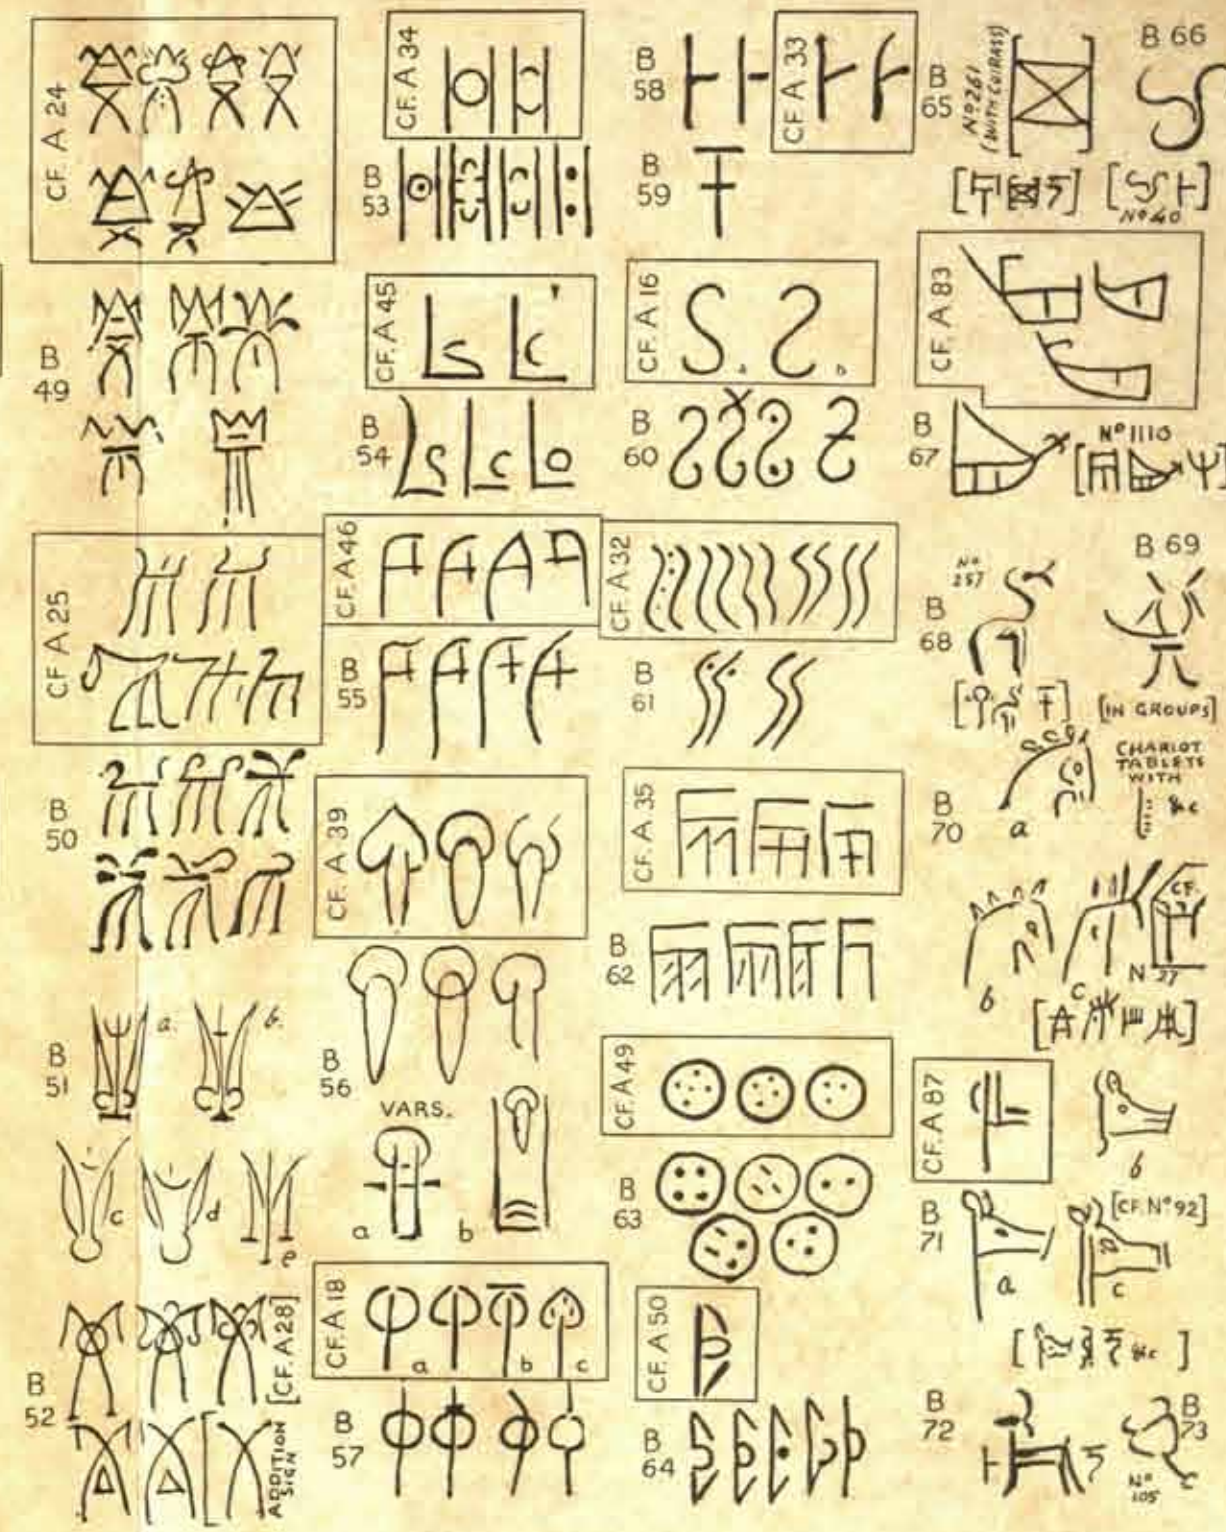 CF. A 24
B 49
CF A 25
B 50
B 51
a.
b.
c
d
e
B 52
[CF. A 28]
ADDITION SIGN
CF. A 34
B 53
CF. A 45
B 54
CF. A 46
B 55
CF. A 39
B 56
VARS.
a
b
CF. A 18
a
b
c
B 57
B 58
CF. A 33
B 59
CF. A 16
a
b
B 60
CF. A 32
B 61
CF. A. 35
B 62
CF. A 49
B 63
CF. A 50
B 64
B 65
Nº 261
(WITH CUIRASS)
B 66
Nº 40
CF. A 83
B 67
Nº 1110
B 68
Nº 257
B 69
[IN GROUPS]
B 70
a
CHARIOT
TABLETS
WITH
&c
b
c
CF.
N 27
CF. A 87
b
B 71
a
[CF. Nº 92]
c
&c
B 72
B 73
Nº 105